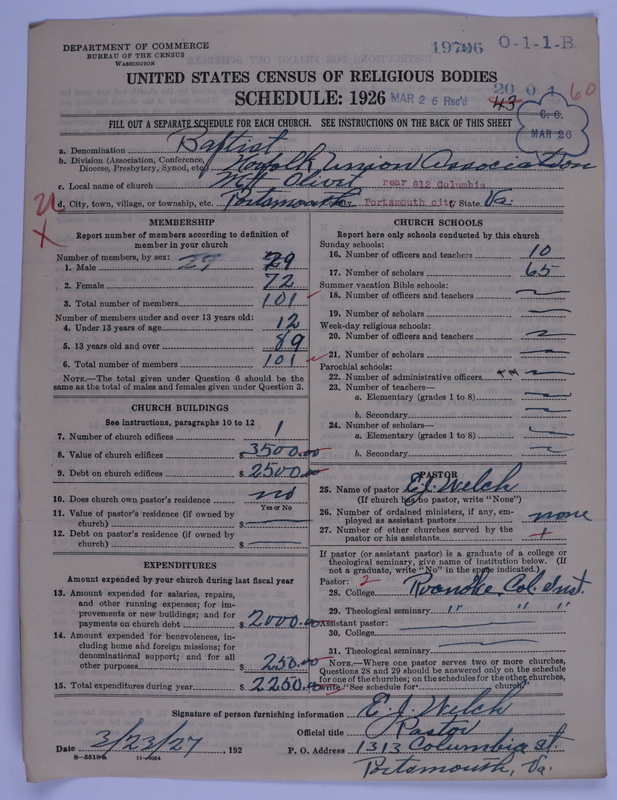 DEPARTMENT OF COMMERCE
BUREAU OF THE CENSUS
WASHINGTON
19706 O-1-1-B
UNITED STATES CENSUS OF RELIGIOUS BODIES
SCHEDULE: 1926 MAR 26 Rec'd 43 60
C. C.
MAR 26
FILL OUT A SEPARATE SCHEDULE FOR EACH CHURCH. SEE INSTRUCTIONS ON THE BACK OF THIS SHEET
a. Denomination Baptist
b. Division (Association, Conference, Diocese, Presbytery, Synod, etc.) Norfolk Union Association
c. Local name of church Mt Olivet rear 812 Columbia
d. City, town, village, or township, etc. Portsmouth County Portsmouth city State Va.
MEMBERSHIP
Report number of members according to definition of
member in your church
Number of members, by sex: 29
1. Male 29
2. Female 72
3. Total number of members 101
Number of members under and over 13 years old:
4. Under 13 years of age 12
5. 13 years old and over 89
6. Total number of members 101
NOTE.—The total given under Question 6 should be the
same as the total of males and females given under Question 3.
CHURCH BUILDINGS
See instructions, paragraphs 10 to 12
7. Number of church edifices 1
8. Value of church edifices $ 3500.00
9. Debt on church edifices $ 2500.00
10. Does church own pastor's residence no
Yes or No
11. Value of pastor's residence (if owned by
church) $
12. Debt on pastor's residence (if owned by
church) $
EXPENDITURES
Amount expended by your church during last fiscal year
13. Amount expended for salaries, repairs,
and other running expenses; for im-
provements or new buildings; and for
payments on church debt $ 2000.00
14. Amount expended for benevolences, in-
cluding home and foreign missions; for
denominational support; and for all
other purposes $ 250.00
15. Total expenditures during year $ 2250.00
CHURCH SCHOOLS
Report here only schools conducted by this church
Sunday schools:
16. Number of officers and teachers 10
17. Number of scholars 65
Summer vacation Bible schools:
18. Number of officers and teachers
19. Number of scholars
Week-day religious schools:
20. Number of officers and teachers
21. Number of scholars
Parochial schools:
22. Number of administrative officers
23. Number of teachers—
a. Elementary (grades 1 to 8)
b. Secondary
24. Number of scholars—
a. Elementary (grades 1 to 8)
b. Secondary
PASTOR
25. Name of pastor E.J. Welch
(If church has no pastor, write "None")
26. Number of ordained ministers, if any, em-
ployed as assistant pastors none
27. Number of other churches served by the
pastor or his assistants
If pastor (or assistant pastor) is a graduate of a college or
theological seminary, give name of institution below. (If
not a graduate, write "No" in the space indicated.)
Pastor: 2
28. College Roanoke Col. Inst.
29. Theological seminary " " "
Assistant pastor:
30. College
31. Theological seminary
NOTE.—Where one pastor serves two or more churches,
Questions 28 and 29 should be answered only on the schedule
for one of the churches; on the schedules for the other churches,
write "See schedule for church"
Signature of person furnishing information E. J. Welch
Official title Pastor
Date 3/23/27, 192 P. O. Address 1313 Columbia st.
8—5518a 11—9024 Portsmouth, Va.